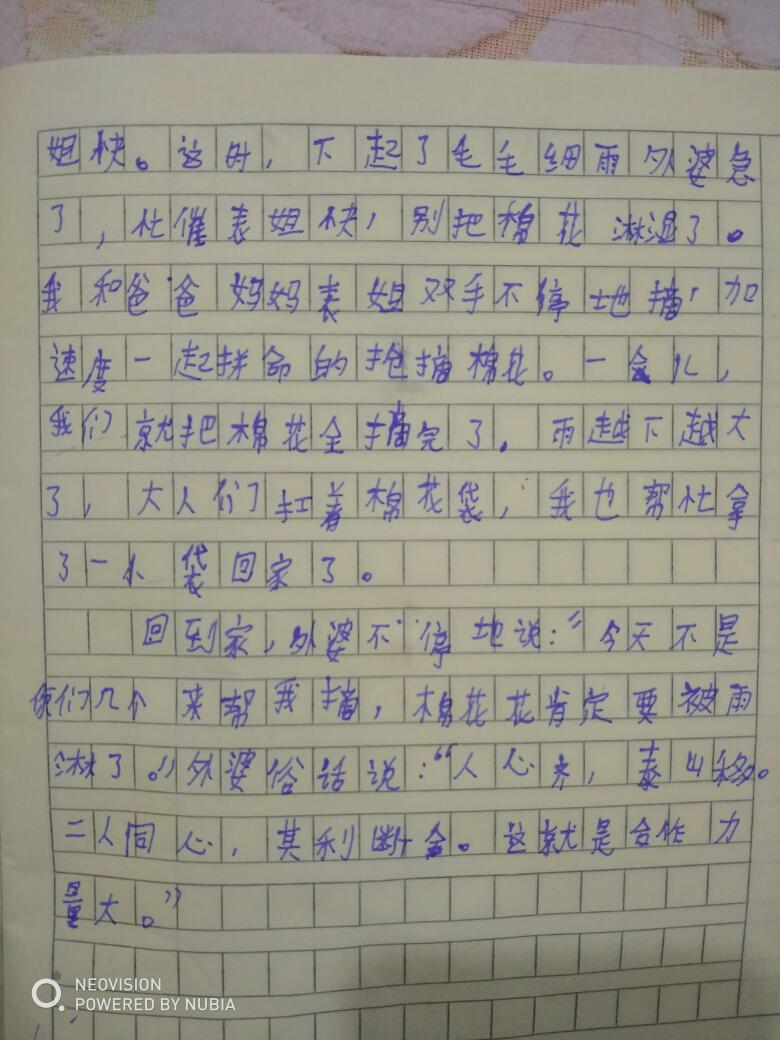 姐快。这时，下起了毛毛细雨外婆急
了，忙催表姐快，别把棉花淋湿了。
我和爸爸妈妈表姐双手不停地摘，加
速度一起拼命的抢摘棉花。一会儿，
我们就把棉花全摘完了。雨越下越大
了，大人们扛着棉花袋，我也帮忙拿
了一小袋回家了。
回到家，外婆不停地说：“今天不是
你们几个来帮我摘，棉花花肯定要被雨
淋了。”外婆俗话说：“人心齐，泰山移。
二人同心，其利断金。这就是合作力
量大。”
NEOVISION
POWERED BY NUBIA